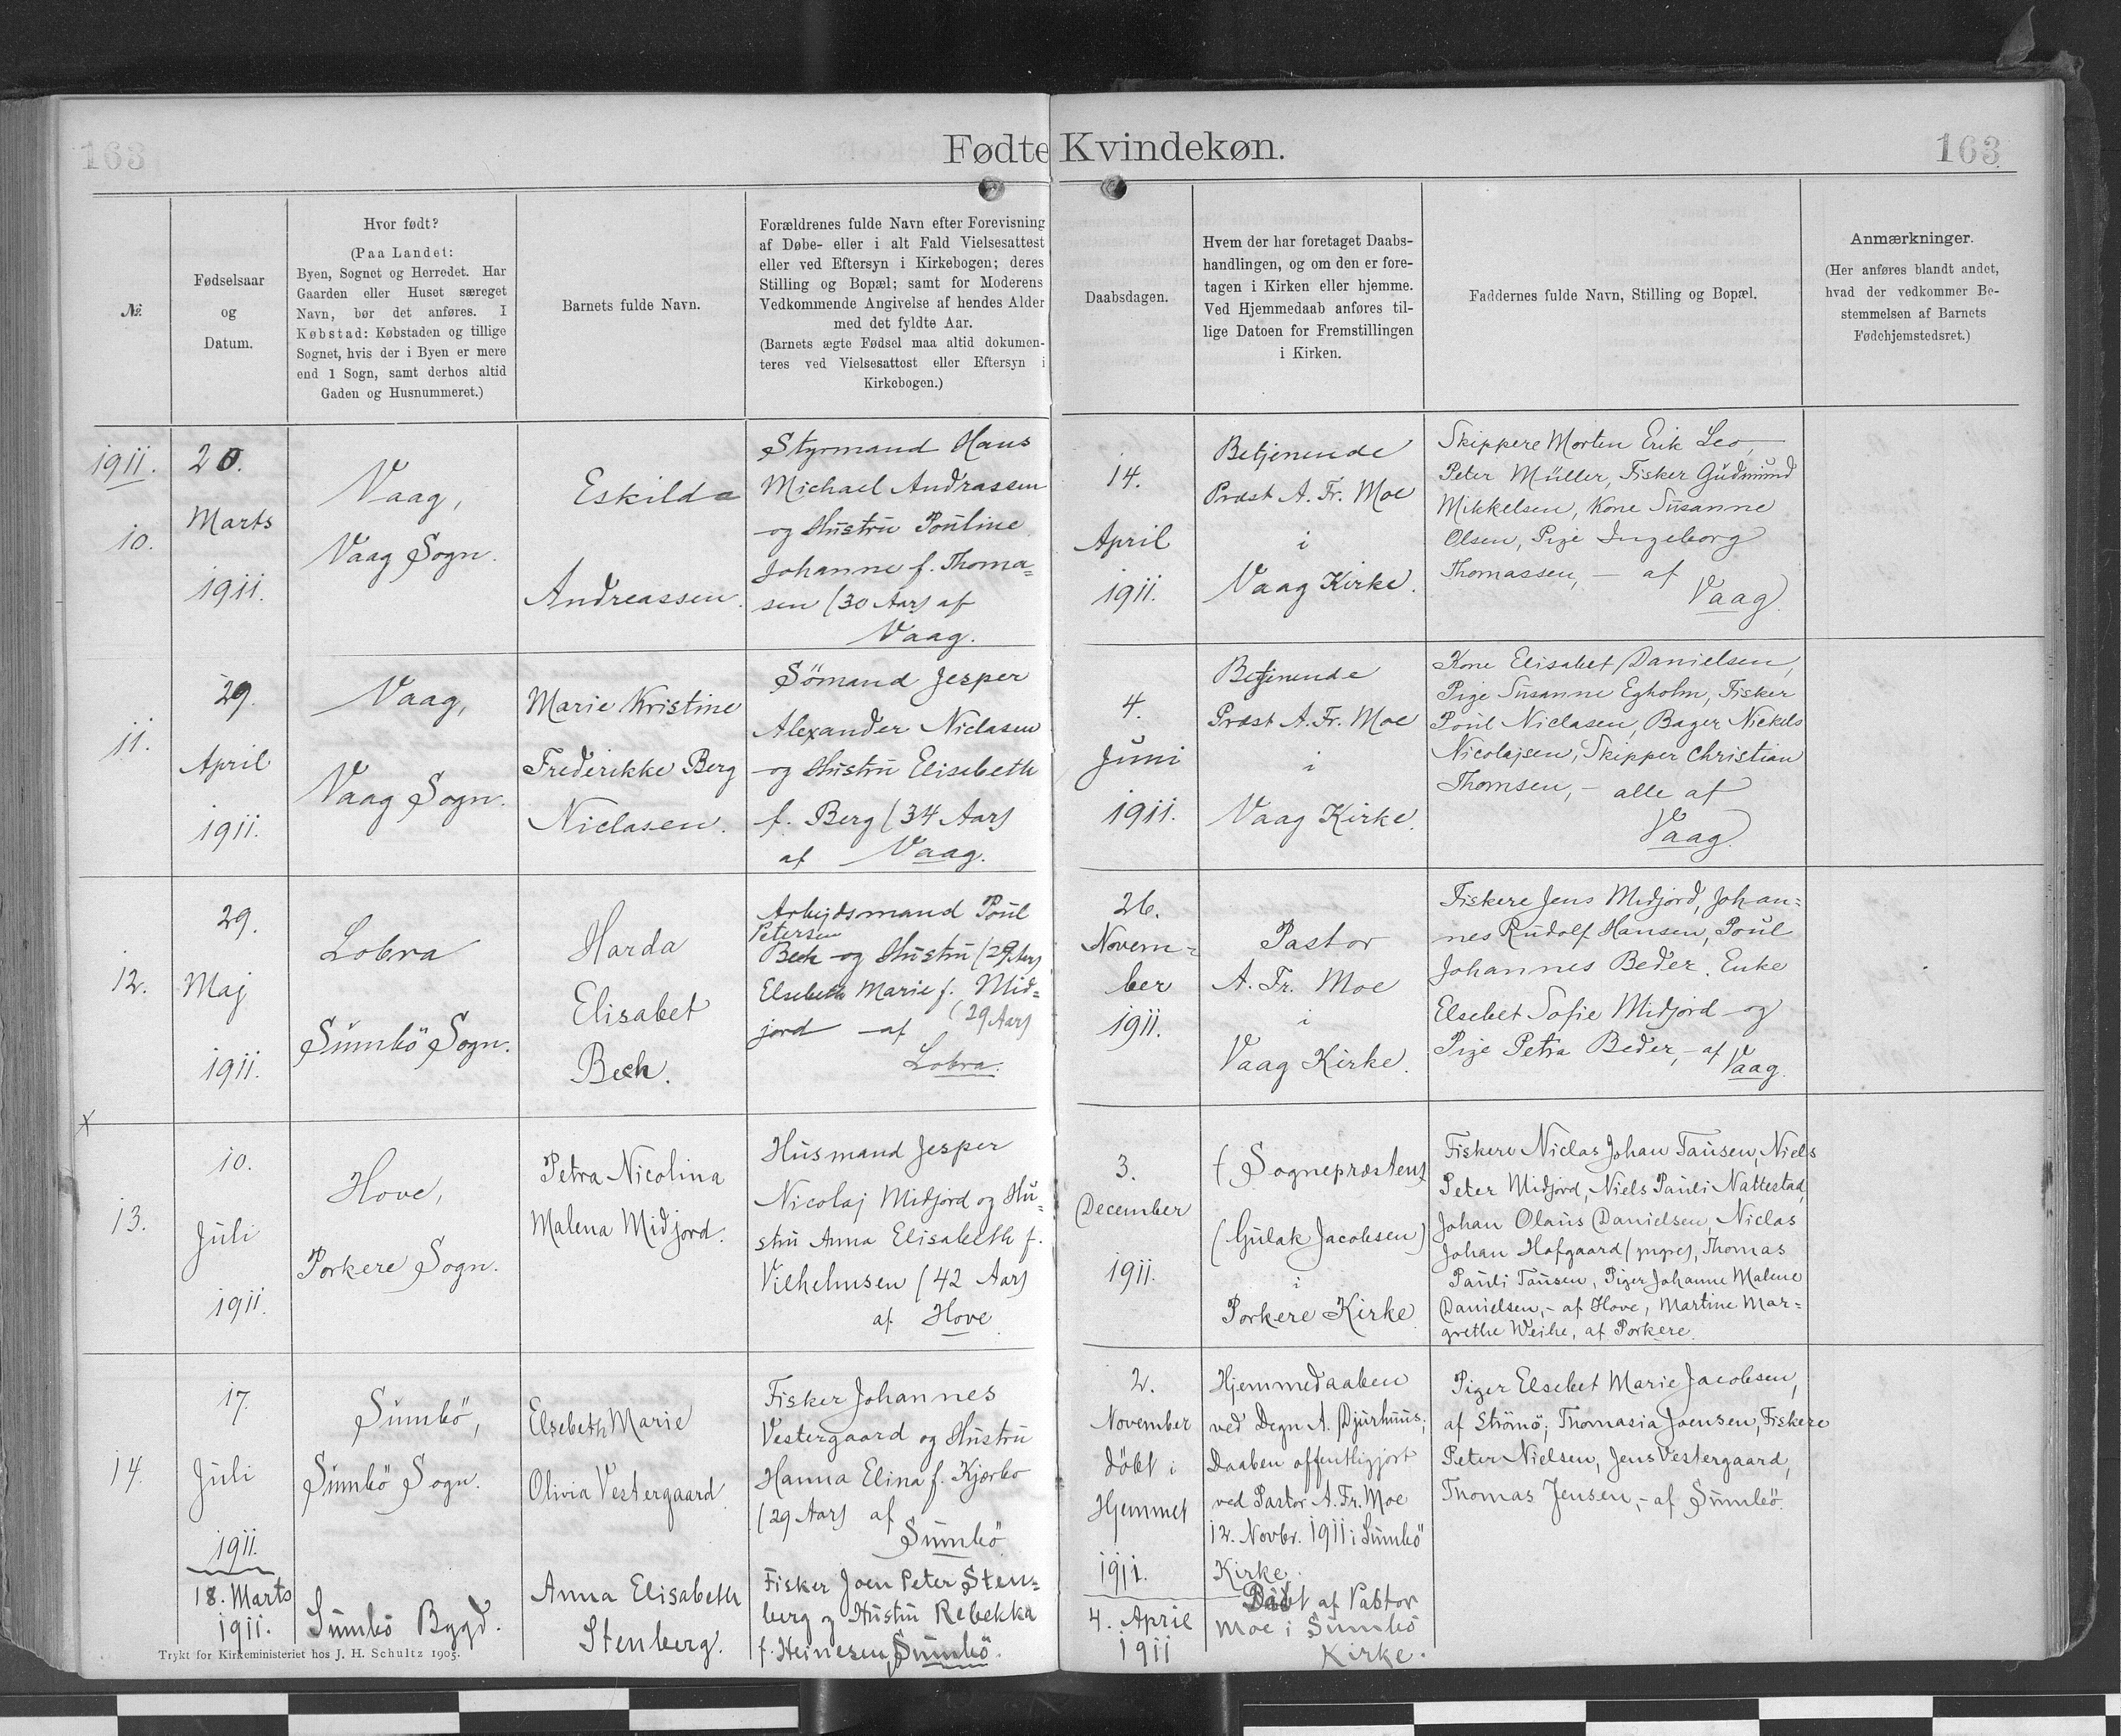 163
Fødte Kvindekøn.
163
№
Fødselsaar
og
Datum.
Hvor født?
(Paa Landet:
Byen, Sognet og Herredet. Har
Gaarden eller Huset særeget
Navn, bør det anføres. I
Købstad: Købstaden og tillige
Sognet, hvis der i Byen er mere
end 1 Sogn, samt derhos altid
Gaden og Husnummeret.)
Barnets fulde Navn.
Forældrenes fulde Navn efter Forevisning
af Døbe- eller i alt Fald Vielsesattest
eller ved Eftersyn i Kirkebogen; deres
Stilling og Bopæl; samt for Moderens
Vedkommende Angivelse af hendes Alder
med det fyldte Aar.
(Barnets ægte Fødsel maa altid dokumen-
teres ved Vielsesattest eller Eftersyn i
Kirkebogen.)
Daabsdagen.
Hvem der har foretaget Daabs-
handlingen, og om den er fore-
tagen i Kirken eller hjemme.
Ved Hjemmedaab anføres til-
lige Datoen for Fremstillingen
i Kirken.
Faddernes fulde Navn, Stilling og Bopæl.
Anmærkninger.
(Her anføres blandt andet,
hvad der vedkommer Be-
stemmelsen af Barnets
Fødehjemstedsret.)
1911.
10.
20.
Marts
1911.
Vaag,
Vaag Sogn.
Eskilda
Andreassen.
Styrmand Hans
Michael Andrassen
og Hustru Pouline
Johanne f. Thoma=
sen (30 Aar) af
Vaag.
14.
April
1911.
Betjenende
Præst A. Fr. Moe
i
Vaag Kirke.
Skippere Morten Erik Leo,
Peter Müller, Fisker Gudmund
Mikkelsen, Kone Susanne
Olsen, Pige Ingeborg
Thomassen, - af
Vaag.
11.
29.
April
1911.
Vaag,
Vaag Sogn.
Marie Kristine
Frederikke Berg
Niclasen.
Sömand Jesper
Alexander Niclasen
og Hustru Elisebeth
f. Berg (34 Aar)
af Vaag.
4.
Juni
1911.
Betjenende
Præst A. Fr. Moe
i
Vaag Kirke.
Kone Elisabet Danielsen,
Pige Susanne Egholm, Fisker
Poul Niclasen, Bager Nickels
Nicolajsen, Skipper Christian
Thomsen, - alle af
Vaag.
12.
29.
Maj
1911.
Lobra
Sumbö Sogn.
Harda
Elisabet
Bech.
Arbejdsmand Poul
Petersen
Bech og Hustru (29 Aar)
Elsebeth Marie f. Mid=
jord - af (29 Aar)
Lobra.
26.
Novem=
ber
1911.
Pastor
A. Fr. Moe
i
Vaag Kirke.
Fiskere Jens Midjord, Johan=
nes Rudolf Hansen, Poul
Johannes Beder, Enke
Elsebet Sofie Midjord og
Pige Petra Beder, - af
Vaag.
x
13.
10.
Juli
1911.
Hove,
Porkere Sogn.
Petra Nicolina
Malena Midjord.
Husmand Jesper
Nicolaj Midjord og Hu=
stru Anna Elisabeth f.
Vilhelmsen (42 Aar)
af Hove
3.
December
1911.
f Sognepræstens
(Gulak Jacobsen)
i
Porkere Kirke
Fiskere Niclas Johan Tausen, Niels
Peter Midjord, Niels Pauli Nattestad,
Johan Olaus Danielsen, Niclas
Johan Hofgaard (yngre), Thomas
Pauli Tausen, Piger Johanne Malene
Danielsen, - af Hove, Martine Mar=
grethe Weihe, af Porkere.
14.
17.
Juli
1911.
Sumbö,
Sumbö Sogn.
Elsebeth Marie
Olivia Vestergaard
Fisker Johannes
Vestergaard og Hustru
Hanna Elina f. Kjærbo
(29 Aar) af
Sumbö.
2.
November
döbt i
Hjemmet
1911.
Hjemmedaaben
ved Degn A. Djurhuus;
Daaben offentligjort
ved Pastor A. Fr. Moe
12. Novbr. 1911 i Sumbö
Kirke.
Piger Elsebet Marie Jacobsen,
af Strömö; Thomasia Joensen, Fiskere
Peter Nielsen, Jens Vestergaard,
Thomas Jensen, - af Sumbö.
18. Marts
1911.
Sumbö Bygd.
Anna Elisabeth
Stenberg.
Fisker Joen Peter Sten=
berg og Hustru Rebekka
f. Heinesen, Sumbö.
4. April
1911
Döbt af Pastor
Moe i Sumbö
Kirke.
Trykt for Kirkeministeriet hos J. H. Schultz 1905.